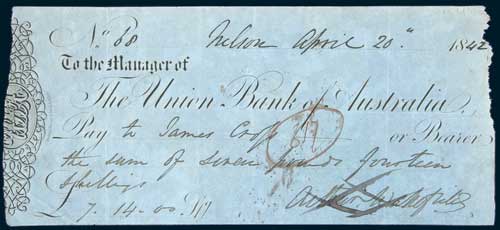 No. 68 Nelson April 20" 1842
To the Manager of
The Union Bank of Australia
Pay to James or Bearer
the sum of seven pounds fourteen
Shillings
7.14.00
Arthur Wakefield